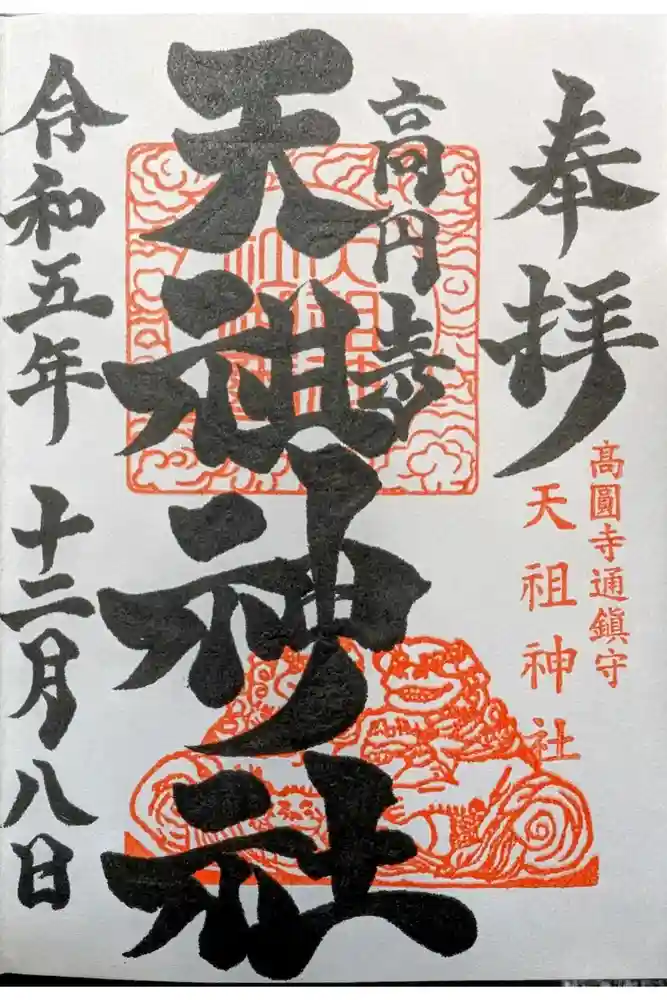 奉拝
髙圓寺通鎮守
天祖神社
高円寺
天祖神社
令和五年 十二月八日